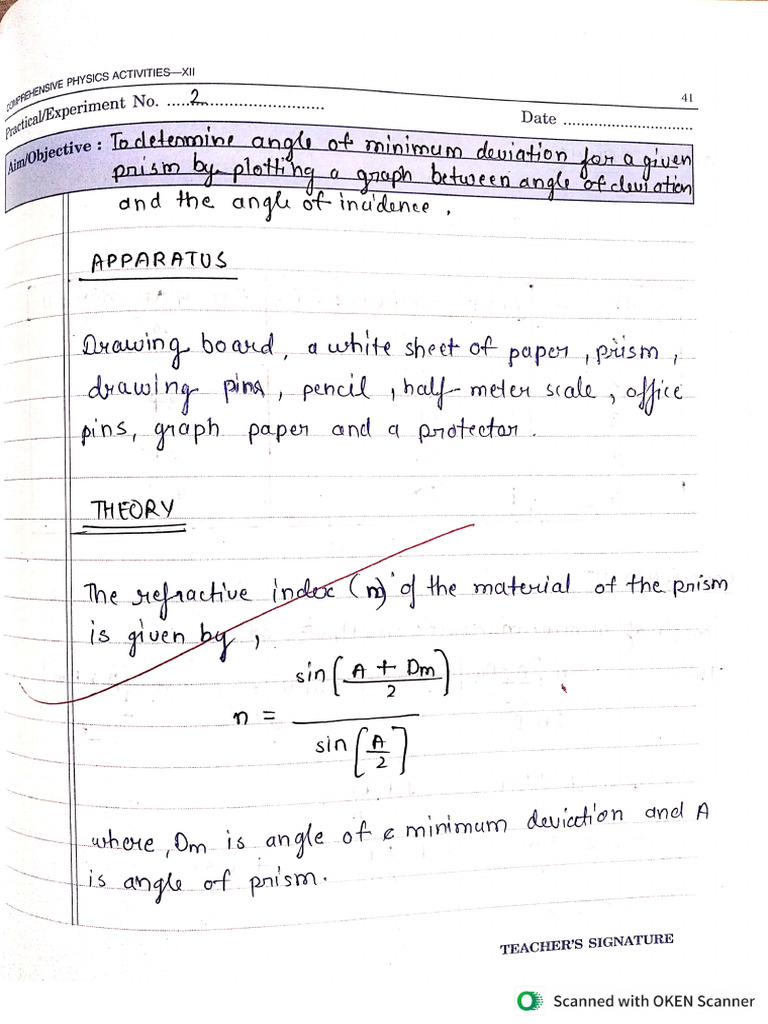 COMPREHENSIVE PHYSICS ACTIVITIES—XII
41
Practical/Experiment No. ..... 2 ..........................
Date ............................
Aim/Objective : To determine angle of minimum deviation for a given
prism by plotting a graph between angle of deviation
and the angle of incidence .
APPARATUS
Drawing board, a white sheet of paper , prism ,
drawing pins , pencil , half-meter scale , office
pins, graph paper and a protector .
THEORY
The refractive index (n) of the material of the prism
is given by ,
n = sin[(A + Dm)/2] / sin[A/2]
where , Dm is angle of minimum deviation and A
is angle of prism.
TEACHER'S SIGNATURE
Scanned with OKEN Scanner